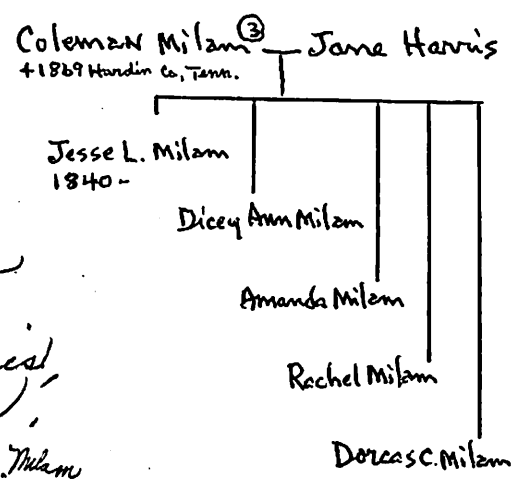 Coleman Milam ③ — Jane Harris
+1869 Hardin Co, Tenn.
Jesse L. Milam
1840-
Dicey Ann Milam
Amanda Milam
Rachel Milam
Dorcas C. Milam
. Milam